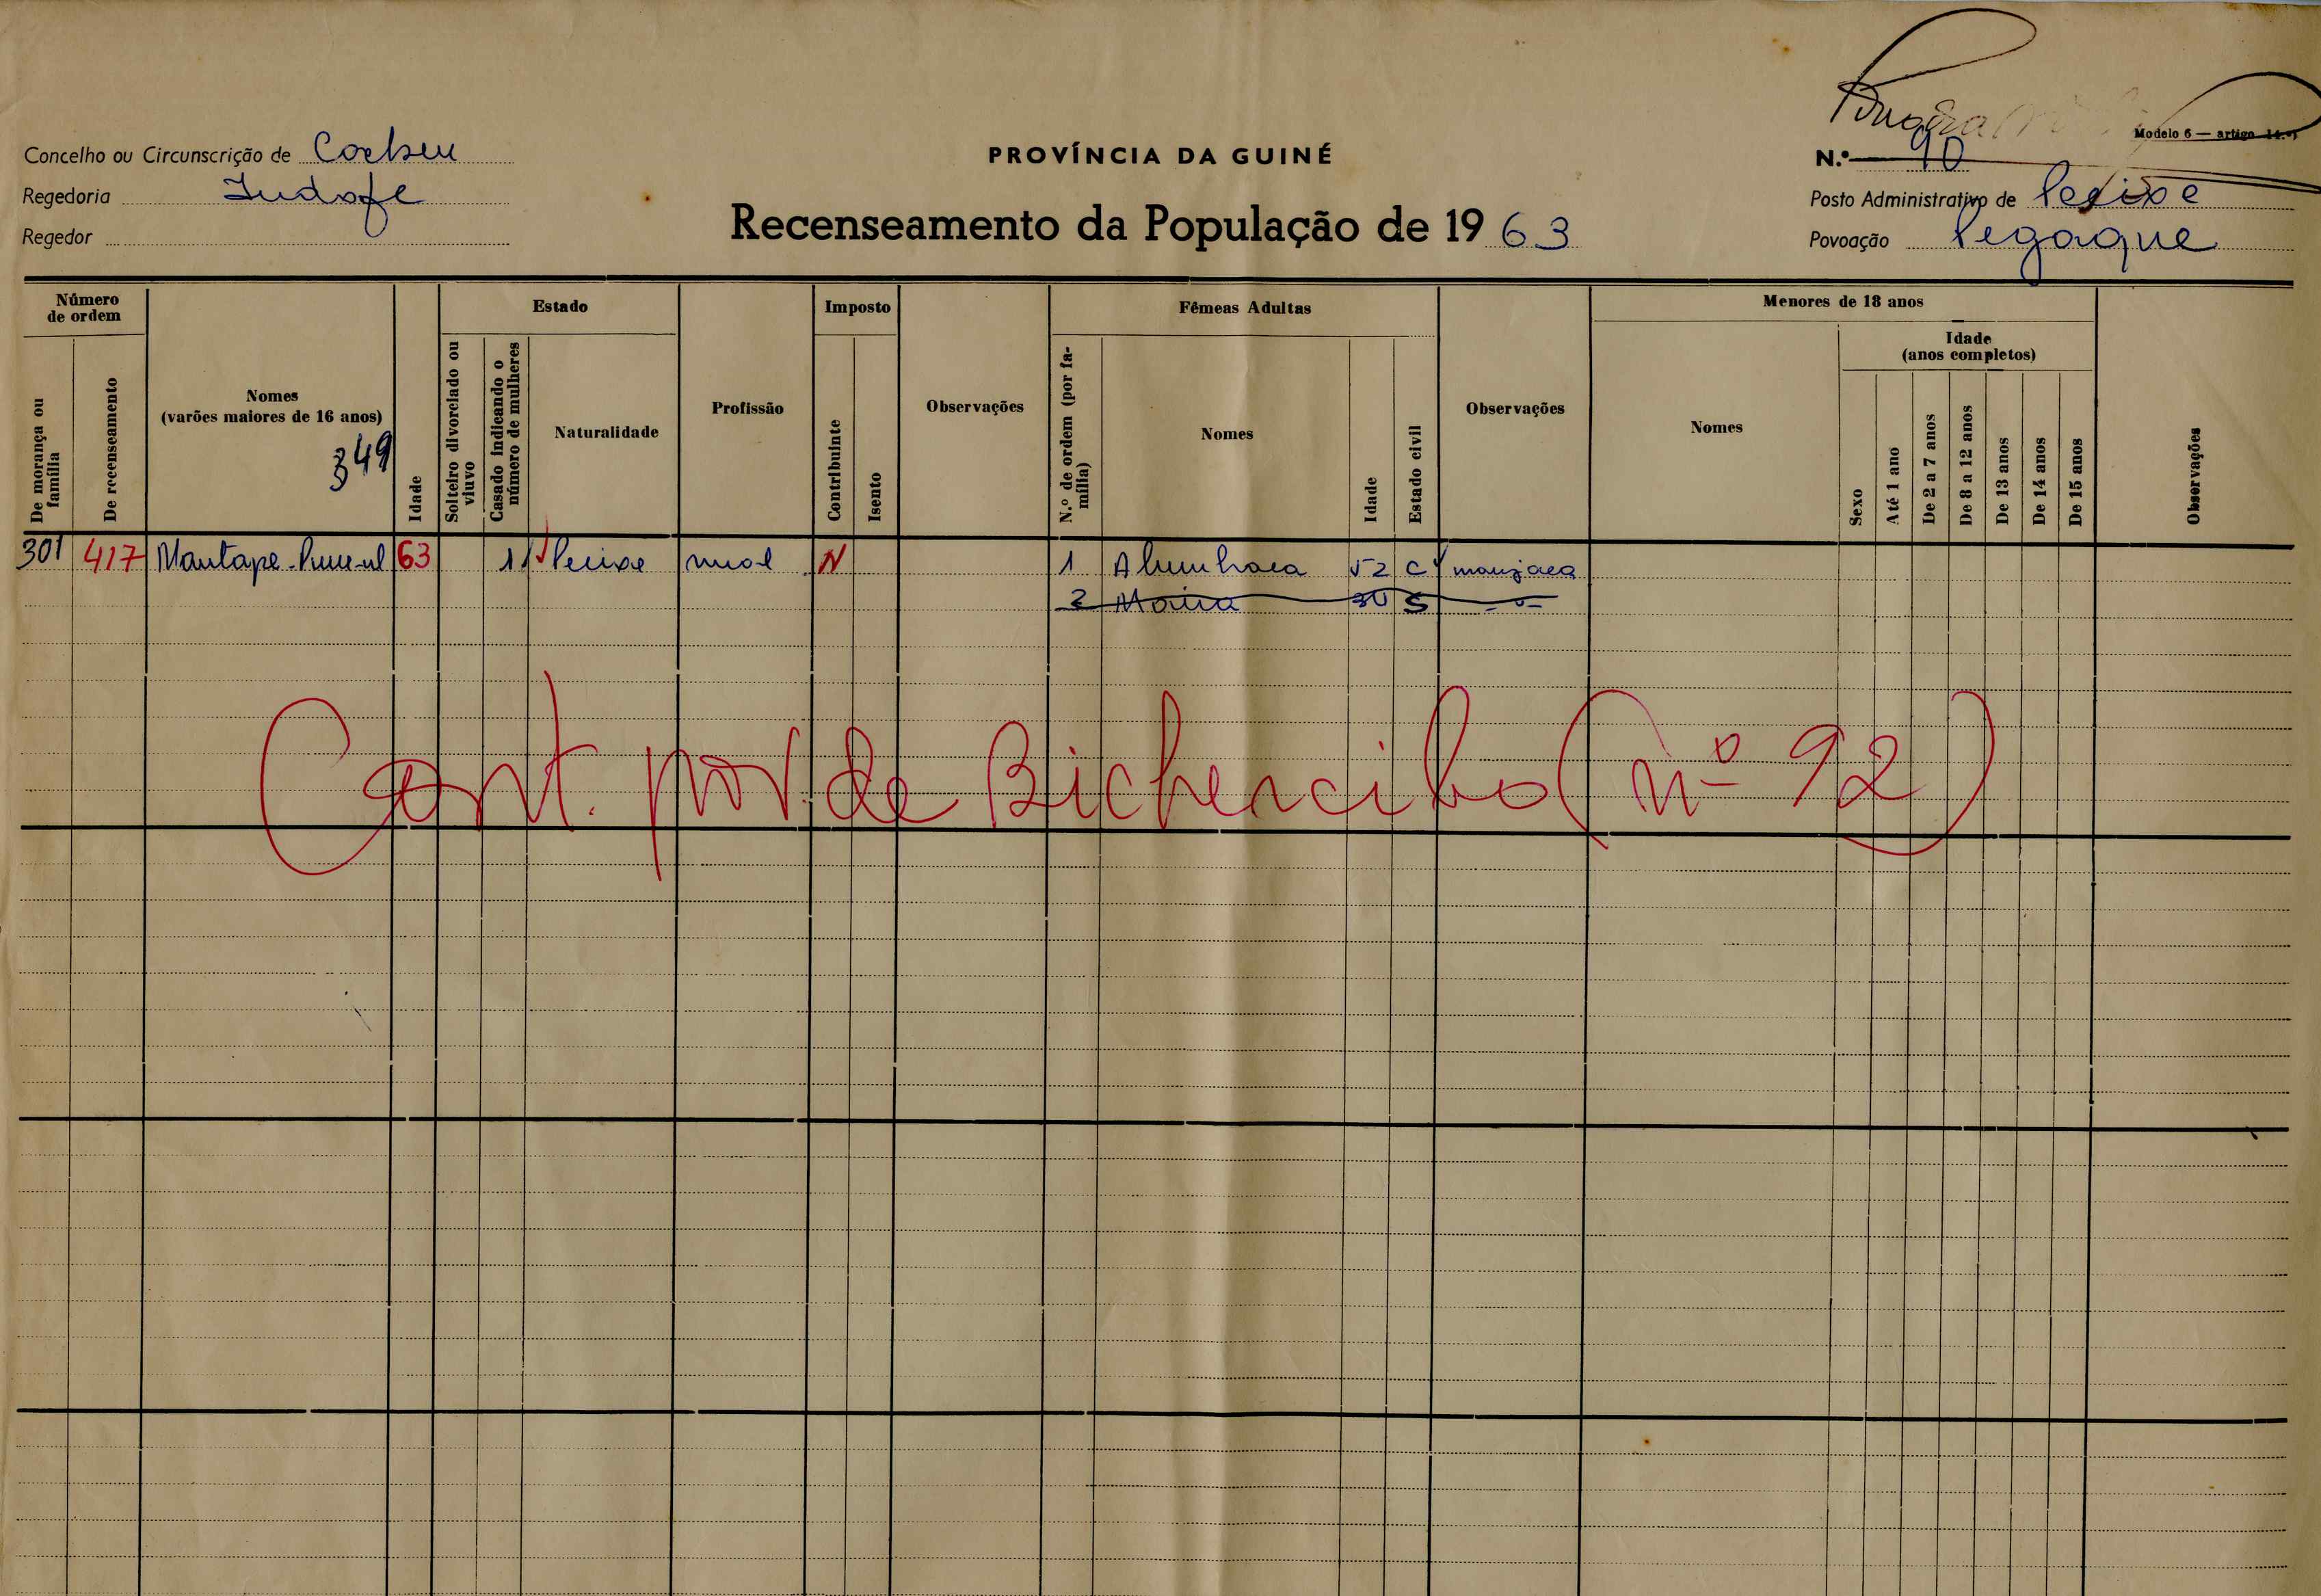 Modelo 6 — artigo 14.º
Concelho ou Circunscrição de Cacheu
PROVÍNCIA DA GUINÉ
N.º 90
Regedoria Indafe
Recenseamento da População de 1963
Posto Administrativo de Pecixe
Regedor
Povoação Pegaque
Número de ordem
Estado
Imposto
Fêmeas Adultas
Menores de 18 anos
De morança ou família
De recenseamento
Nomes (varões maiores de 16 anos)
349
Idade
Solteiro divorciado ou viuvo
Casado indicando o número de mulheres
Naturalidade
Profissão
Contribuinte
Isento
Observações
N.º de ordem (por família)
Nomes
Idade
Estado civil
Observações
Nomes
Sexo
Idade (anos completos)
Até 1 ano
De 2 a 7 anos
De 8 a 12 anos
De 13 anos
De 14 anos
De 15 anos
Observações
301 417 Mantape 63 1 Pecixe N 1 52 C manjaca
2 Maria 30 S
Cont. pov. de Bichencibo (nº 92)